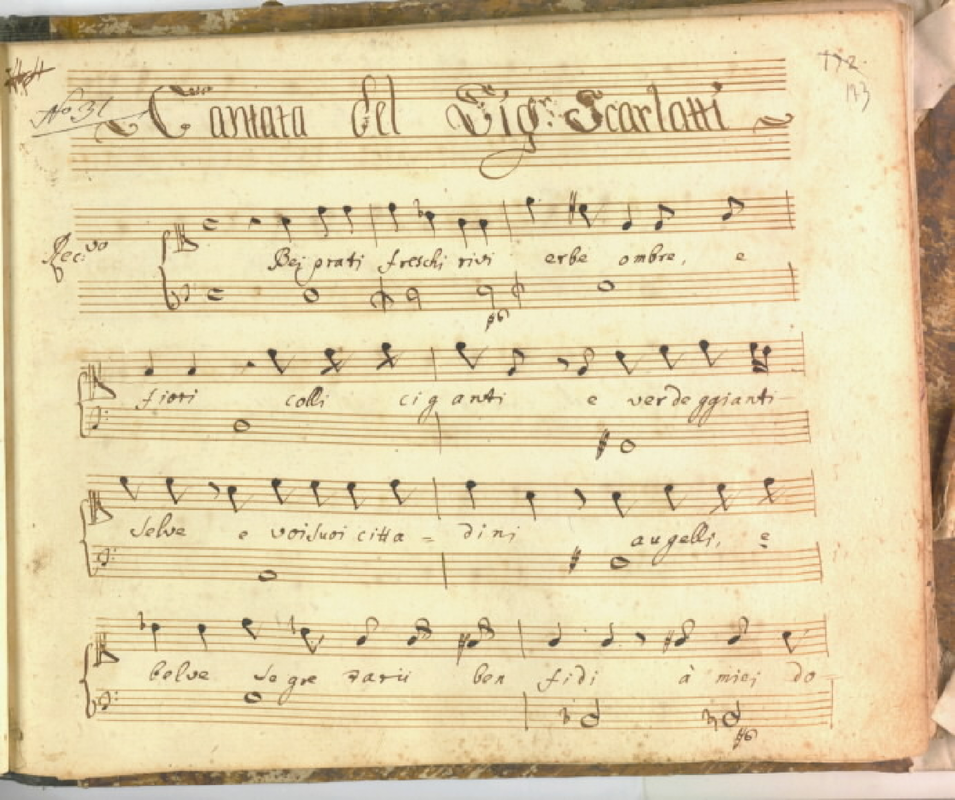 172.
173
No 31
Cantata del Sigr. Scarlatti
Recivo
Bei prati freschi rivi erbe ombre, e
p6
fiori colli giganti e verdeggianti
selve e voi suoi citta = dini augelli, e
belve segretarii ben fidi à miei do
#6